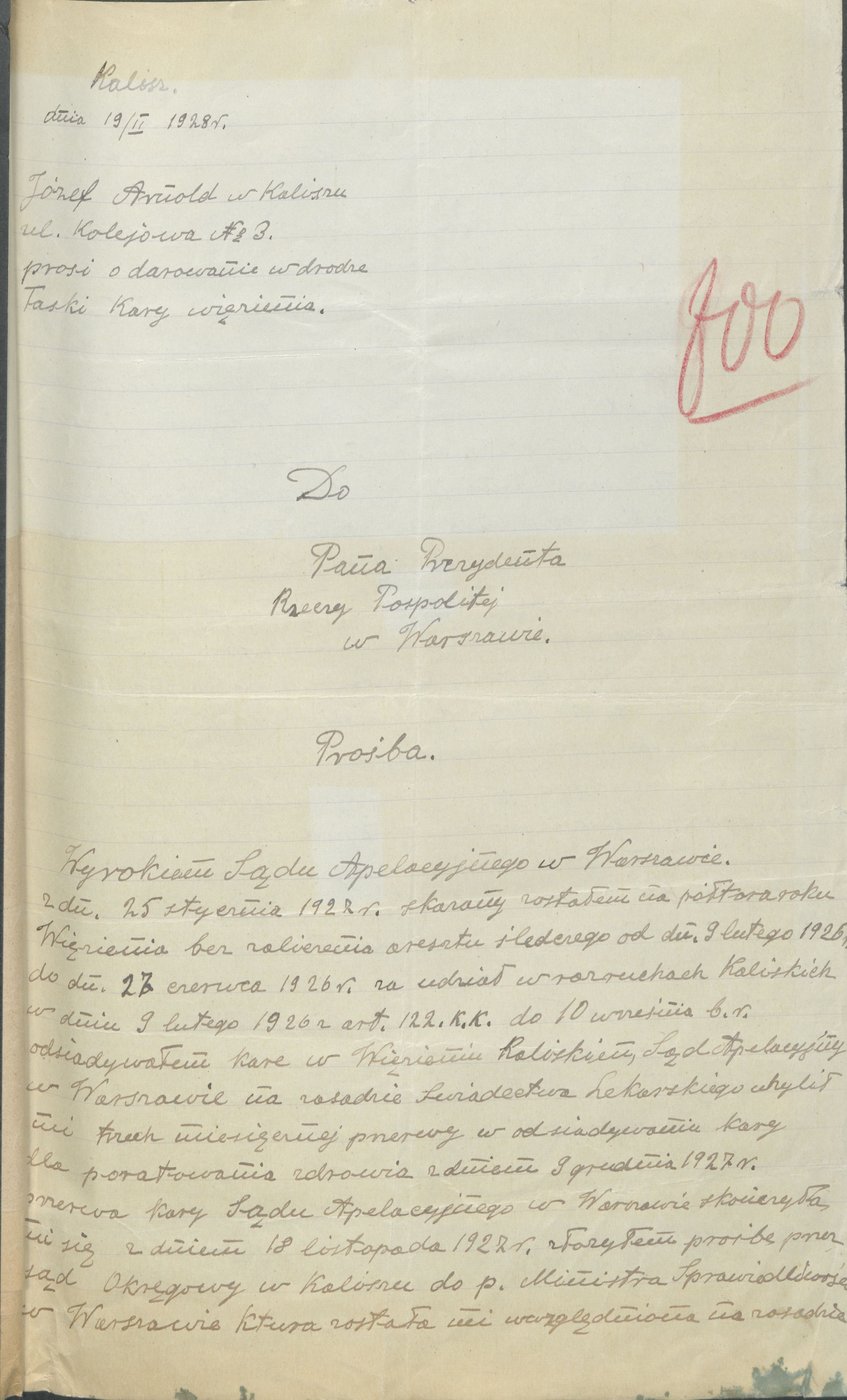 Kalisz.
dnia 19/II 1928r.
Józef Arnold w Kaliszu
ul. Kolejowa № 3.
prosi o darowanie w drodze
łaski Kary więzienia.
Do
Pana Prezydenta
Rzeczy Pospolitej
w Warszawie.
Prośba.
Wyrokiem Sądu Apelacyjnego w Warszawie.
z dn. 25 stycznia 1927r. skazany zostałem na półtora roku
Więzienia bez zaliczenia aresztu śledczego od dn. 9 lutego 1926r
do dn. 27 czerwca 1926r. za udział w rozruchach Kaliskich
w dniu 9 lutego 1926 z art. 122. K.K. do 10 września b.r.
odsiadywałem kare w Więzieniu Kaliskiem, Sąd Apelacyjny
w Warszawie na zasadzie Swiadectwa Lekarskiego uhylił
mi trzech miesięcznej przerwy w odsiadywaniu kary
dla poratowania zdrowia z dniem 9 grudnia 1927r.
przerwa kary Sądu Apelacyjnego w Warszawie skończyła
mi się z dniem 18 listopada 1927r. złożyłem prośbe przez
sąd Okręgowy w Kaliszu do p. Ministra Sprawiedliwości
w Warszawie Ktura została mi uwzględniona na zasadzie